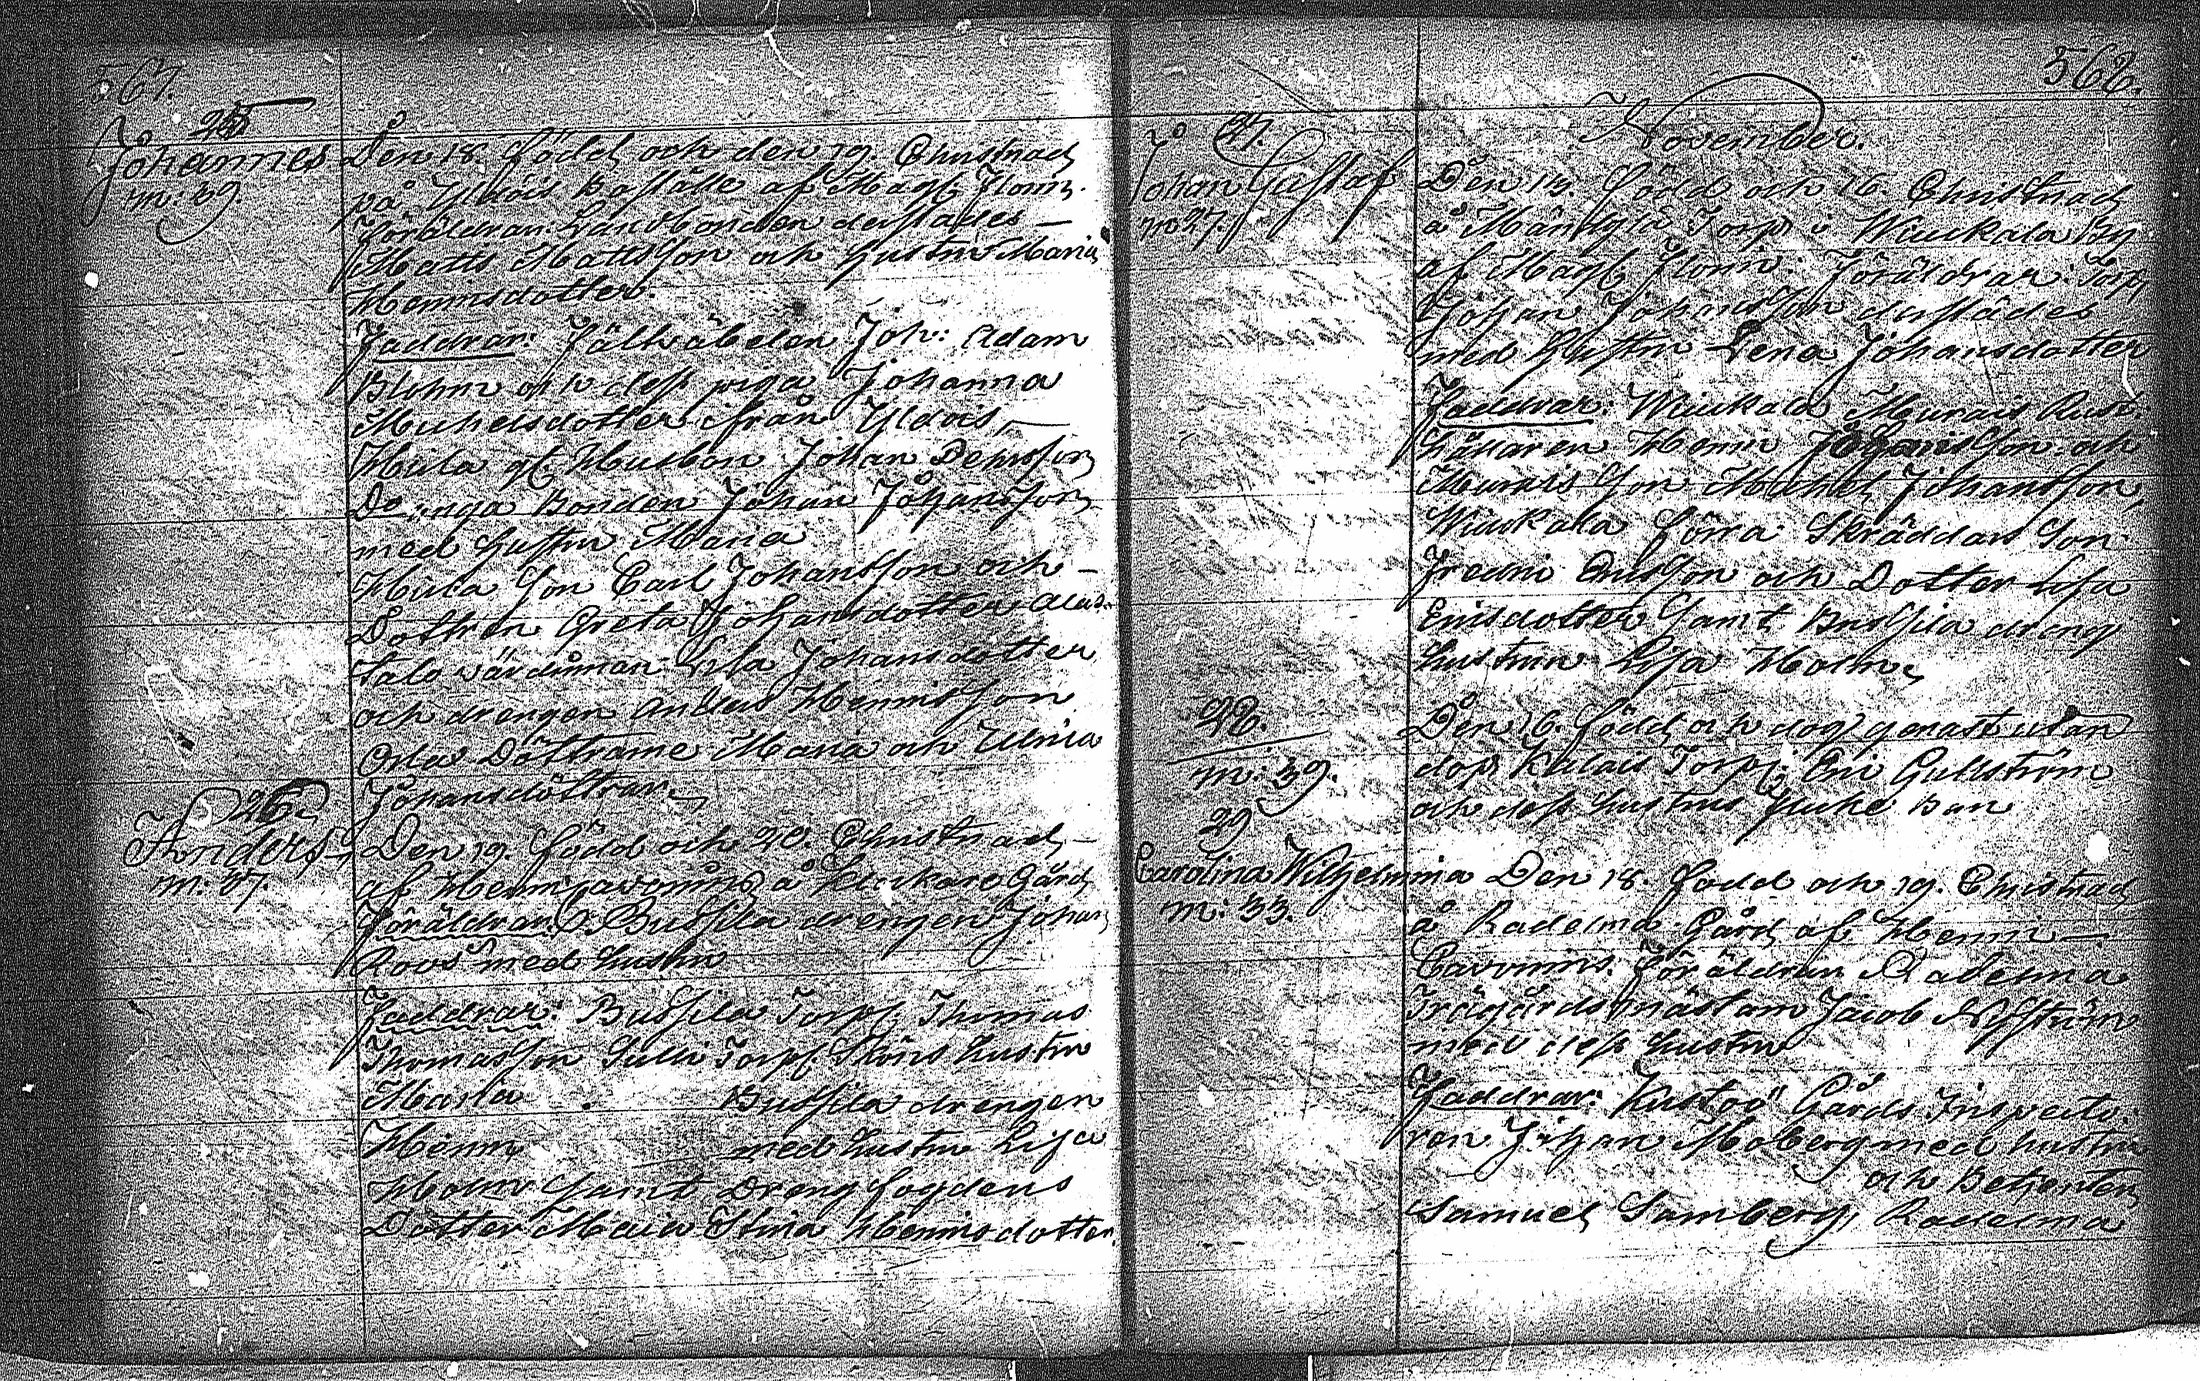 567.
25.
Johannes
m: 39.
Den 18. född och den 19. Christnad
på Yldois Boställe af Mag. Florin.
Föräldrar: Landbonden derstädes –
Matts Mattsson och Hustru Maria
Henricsdotter.
Faddrar: Fältväbelen Joh: Adam
Blohm och dess piga Johanna
Michelsdotter från Yldois, –
Hula gl. Husbon Johan
D:o unga Bonden Johan Johansson
med Hustru Maria
Hula Son Carl Johansson och –
Dottren Greta Johansdotter
talo wärdinnan Lisa Johansdotter
och drengen Anders Henricsson
Orla Döttrarne Maria och Ulrica
Johansdöttrar.
26.
Anders
m: 37.
Den 19. född och 20. Christnad –
af Henr: Pavonius å Gård
Föräldrar: Bussila drengen Johan
Roos med hustru
Faddrar: Bussila Torp. Thomas
Thomasson Torp. hustru
Maria Bussila drengen
Henric med hustru Lisa
Holm samt Dreng fogdens
Dotter Maria Stina Henricsdotter.
568.
November.
27.
Johan Gustaf
m 27.
Den 13. född och 16. Christnad
å Torp i Wiuckala By
af Mag. Florin. Föräldrar: Torp
Johan Johansson derstädes
med Hustru Lena Johansdotter
Faddrar: Wiuckala Murais Rust-
hållaren Henric Johansson och
Murais Son Michel Johansson,
Wiuckala förra Skräddars Son
Fredric Ericsson och Dotter Lisa
Ericsdotter samt Bussila dreng
hustrun Lisa Holm.
28.
m: 39.
Den 16. född och dog genast utan
dop Torp. Eric Gullström
och dess hustrus Barn
29
Carolina Wilhelmina
m: 33.
Den 18. född och 19. Christnad
å Radelma Gård af Henric –
Pavonius. Föräldrar Radelma
Trägårds mästarn Jacob Nyström
med dess hustru
Faddrar: Kustoö Gårds Inspecto
ren Johan Moberg med hustru
och Betjenten
Samuel Samberg, Radelma